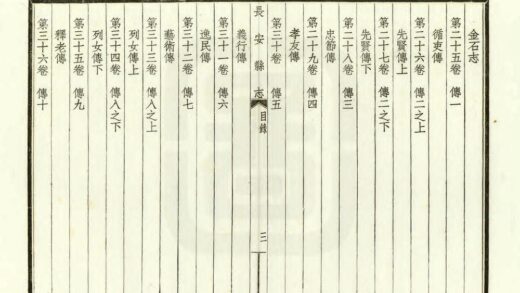 金石志
第二十五卷 傳一
循吏傳
第二十六卷 傳二之上
先賢傳上
第二十七卷 傳二之下
先賢傳下
第二十八卷 傳三
忠節傳
第二十九卷 傳四
孝友傳
第三十卷 傳五
長安縣志 目錄 三
義行傳
第三十一卷 傳六
逸民傳
第三十二卷 傳七
藝術傳
第三十三卷 傳八之上
列女傳上
第三十四卷 傳八之下
列女傳下
第三十五卷 傳九
釋老傳
第三十六卷 傳十